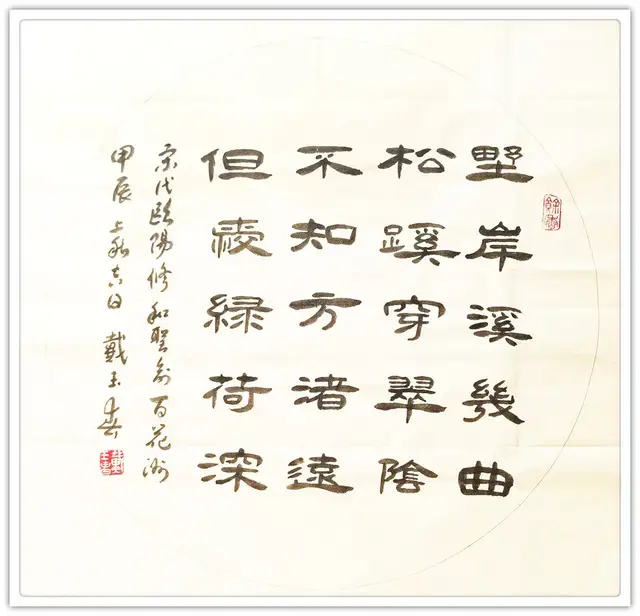 野岸溪幾曲
松蹊穿翠陰
不知方渚遠
但愛緑荷深
宋代歐陽修和聖俞百花洲
甲辰上秋吉日 戴玉春